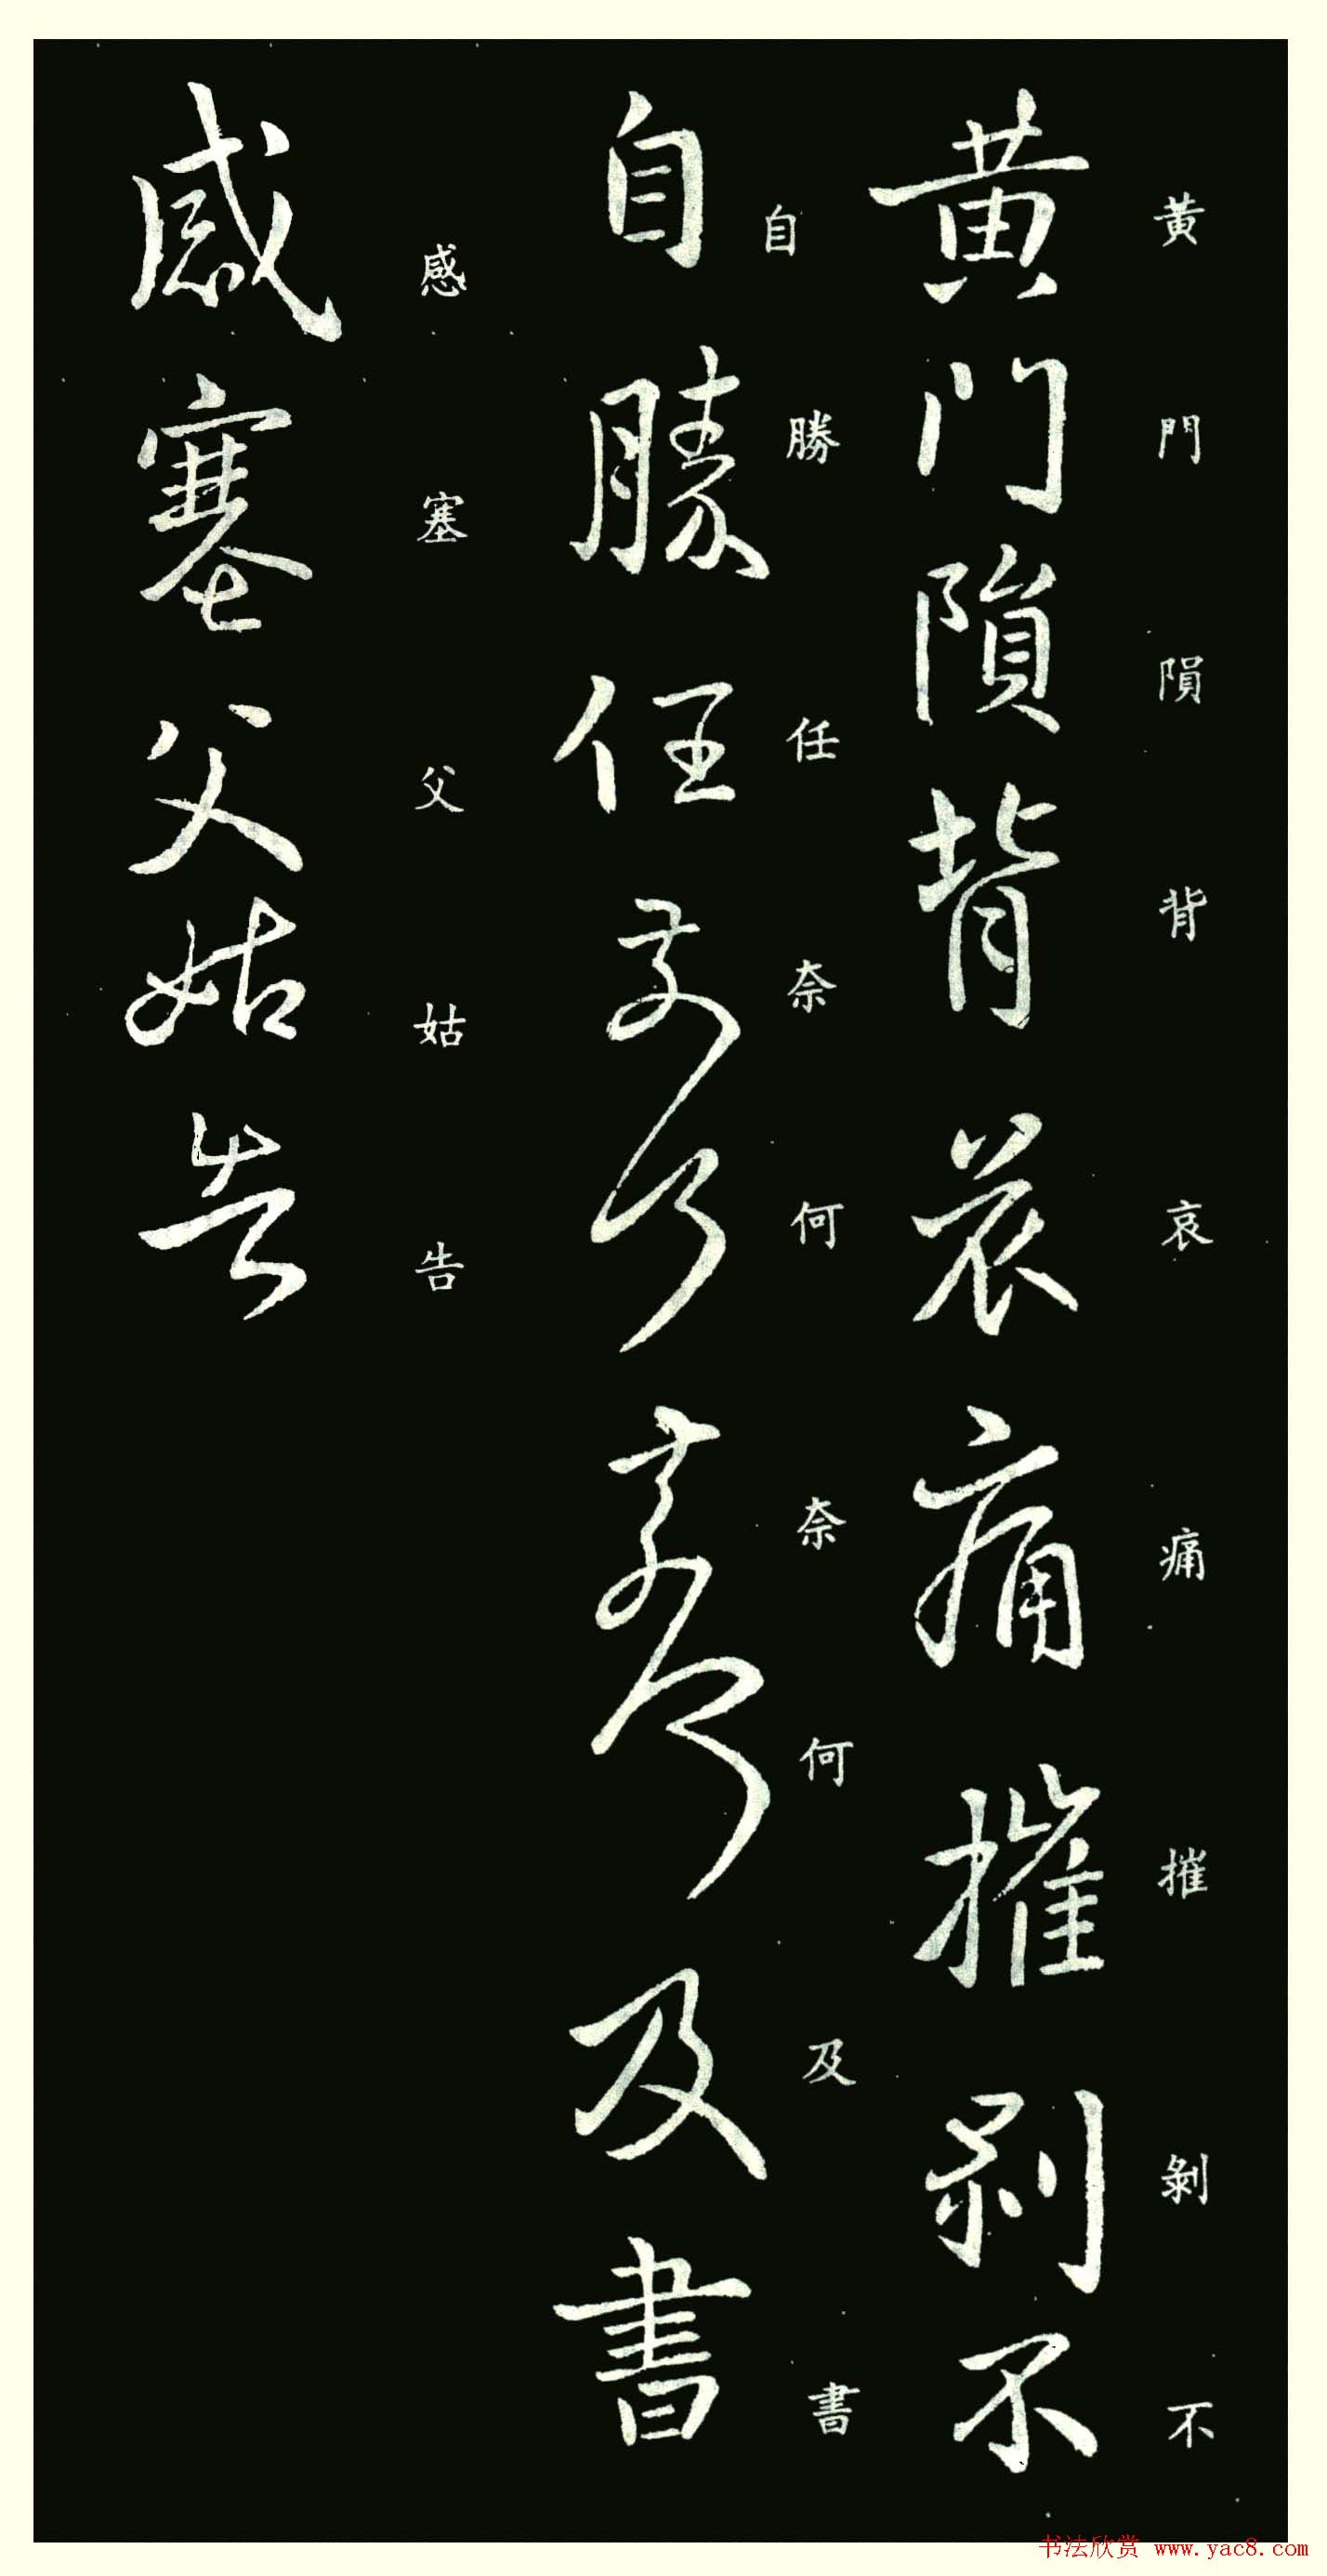 黄門隕背哀痛摧剝不
黄門隕背哀痛摧剝不
自勝任奈何奈何及書
自勝任奈何奈何及書
感塞父姑告
感塞父姑告
书法欣赏 www.yac8.com